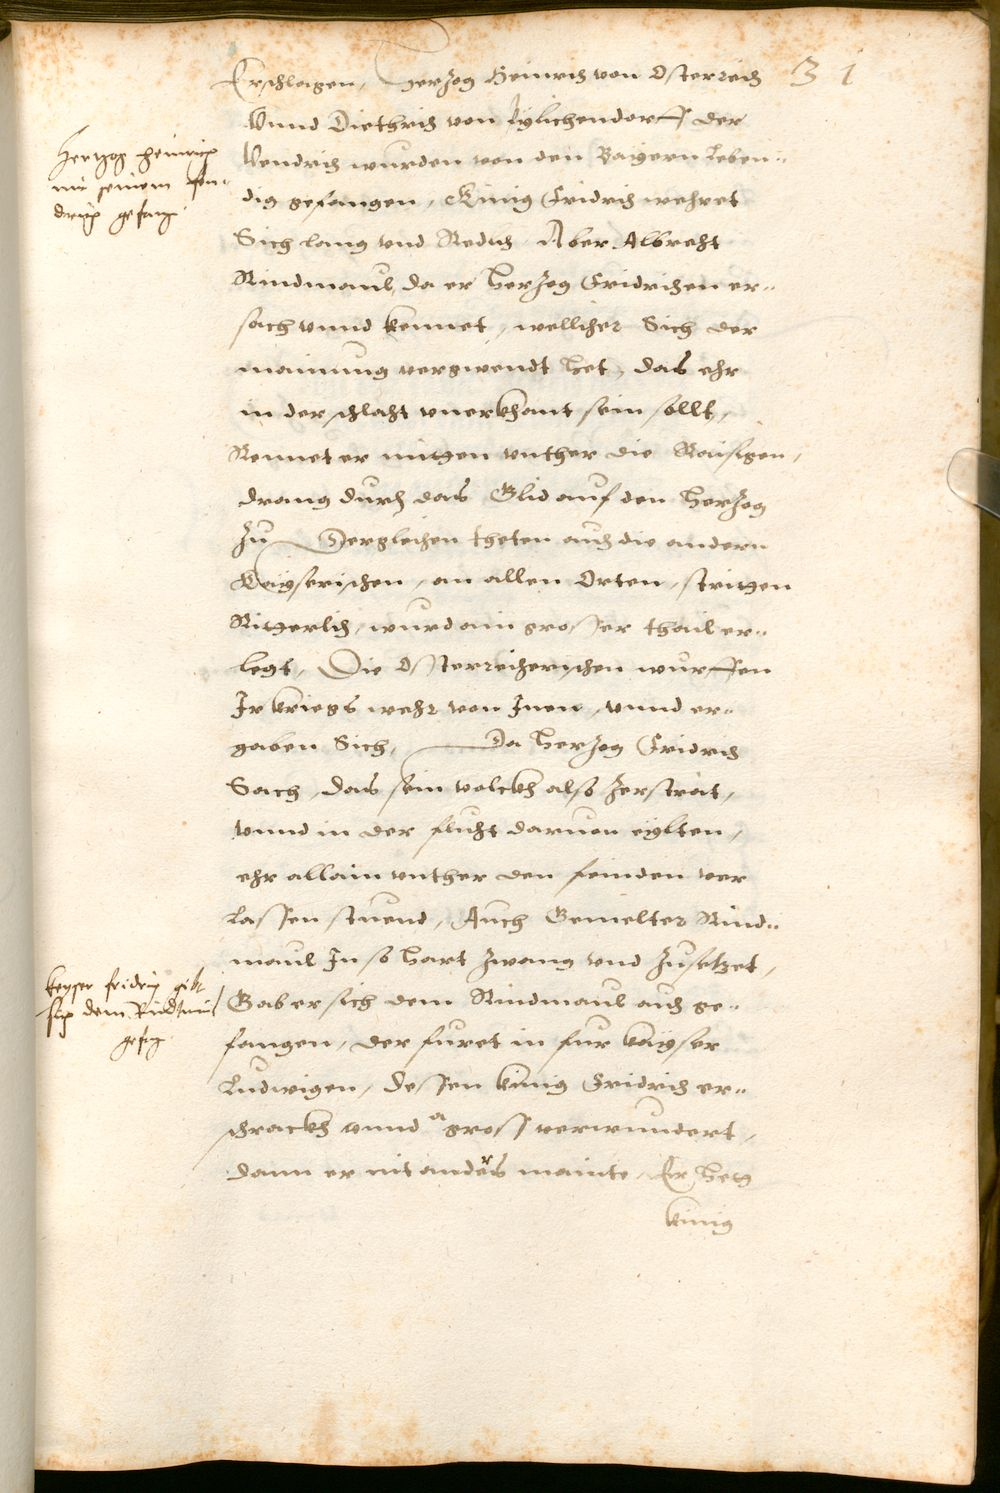 Erschlagen, Herzog Heinrich von Osterreich
31
Vnnd Diethrich von Pylichendorff der
Vendrich wurden von den Baÿern leben-
dig gefangen, König Fridrich wehret
Sich lang vnd Redlich Aber Albrecht
Rindmaul, da er Herzog Fridrichen er-
sach vnnd kennet, wellicher Sich der
mainung verwendt het, das ehr
in der schlacht vnerkhant sein sollt,
Rennet er mitten vnther die Raisigen,
drang durch das Glid auf den Herzog
Zu Dergleichen theten auch die andern
Kaÿserischen, an allen Orten, stritten
Ritterlich, wurd ain grosser thail er-
legt, Die Osterreicherischen wurffen
Ir kriegs wehr von Inen, vnnd er-
gaben Sich, Da Herzog Fridrich
Sach, das sein volckh also Zerstrat,
vnnd in der flucht daruon eÿlten,
ehr allain vnther den feinden ver
lassen stuend, Auch Gemelter Rind-
maul In so hart Zwang vnd Zusetzet,
Gab er sich dem Rindmaul auch ge-
fangen, der furet in fur kaÿser
Ludwigen, dessen kunig Fridrich er-
schrackh vnnd gross verwundert,
dann er nit anders mainte, Er het
kunig
Hertzog Heinrich
mit seinem fen-
drich gefang
keyser fridrich gibt
sich dem Rindmaul
gefang